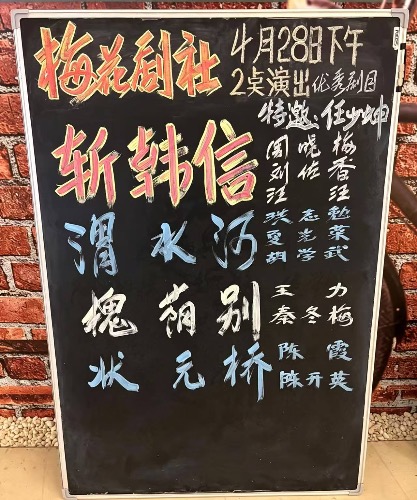 梅花剧社
4月28日下午
2点演出优秀剧目
特邀：任少坤
斩韩信
闫晓梅
刘佐香
汪 汪
渭水河
洪志勳
夏光荣
胡学武
槐荫别
王 力
秦冬梅
状元桥
陈 霞
陈开英